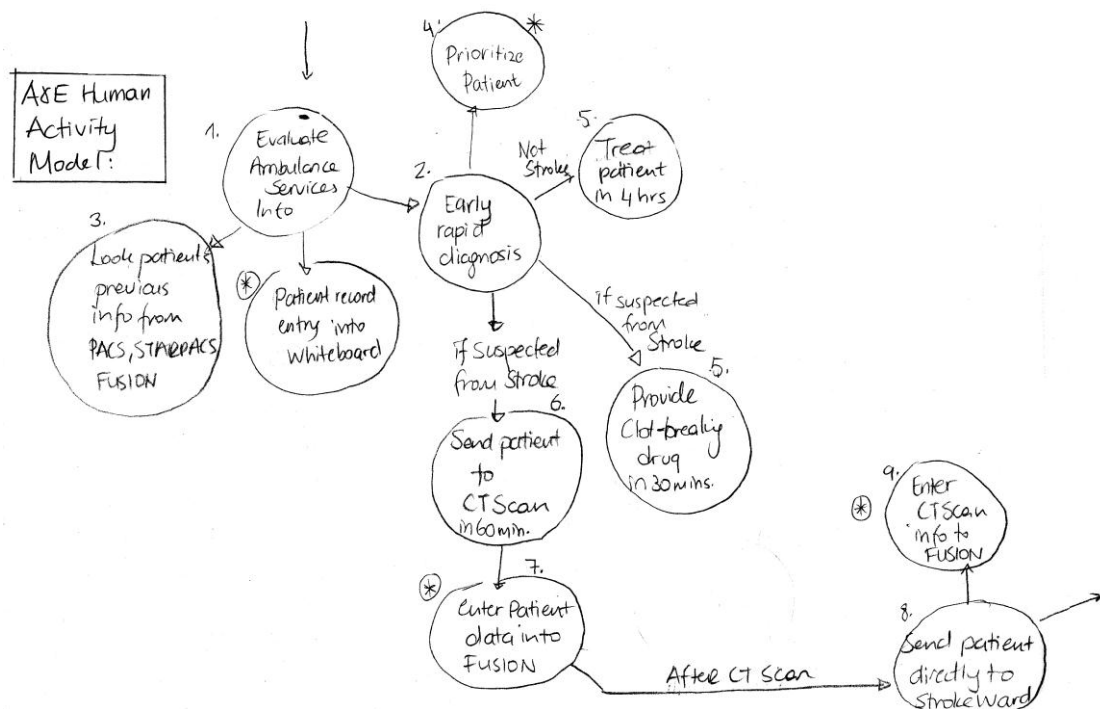 A&E Human
Activity
Model:
1.
Evaluate
Ambulance
Services
Info
3.
Look patients
previous
info from
PACS, STARPACS,
FUSION
*
Patient record
entry into
Whiteboard
2.
Early
rapid
diagnosis
4.
*
Prioritize
Patient
Not
Stroke
5.
Treat
patient
in 4 hrs
if suspected
from
Stroke
5.
Provide
Clot-breaking
drug
in 30 mins.
if suspected
from Stroke
6.
Send patient
to
CT Scan
in 60 min.
7.
*
enter Patient
data into
FUSION
After CT Scan
8.
Send patient
directly to
Stroke Ward
9.
*
Enter
CT Scan
info to
FUSION